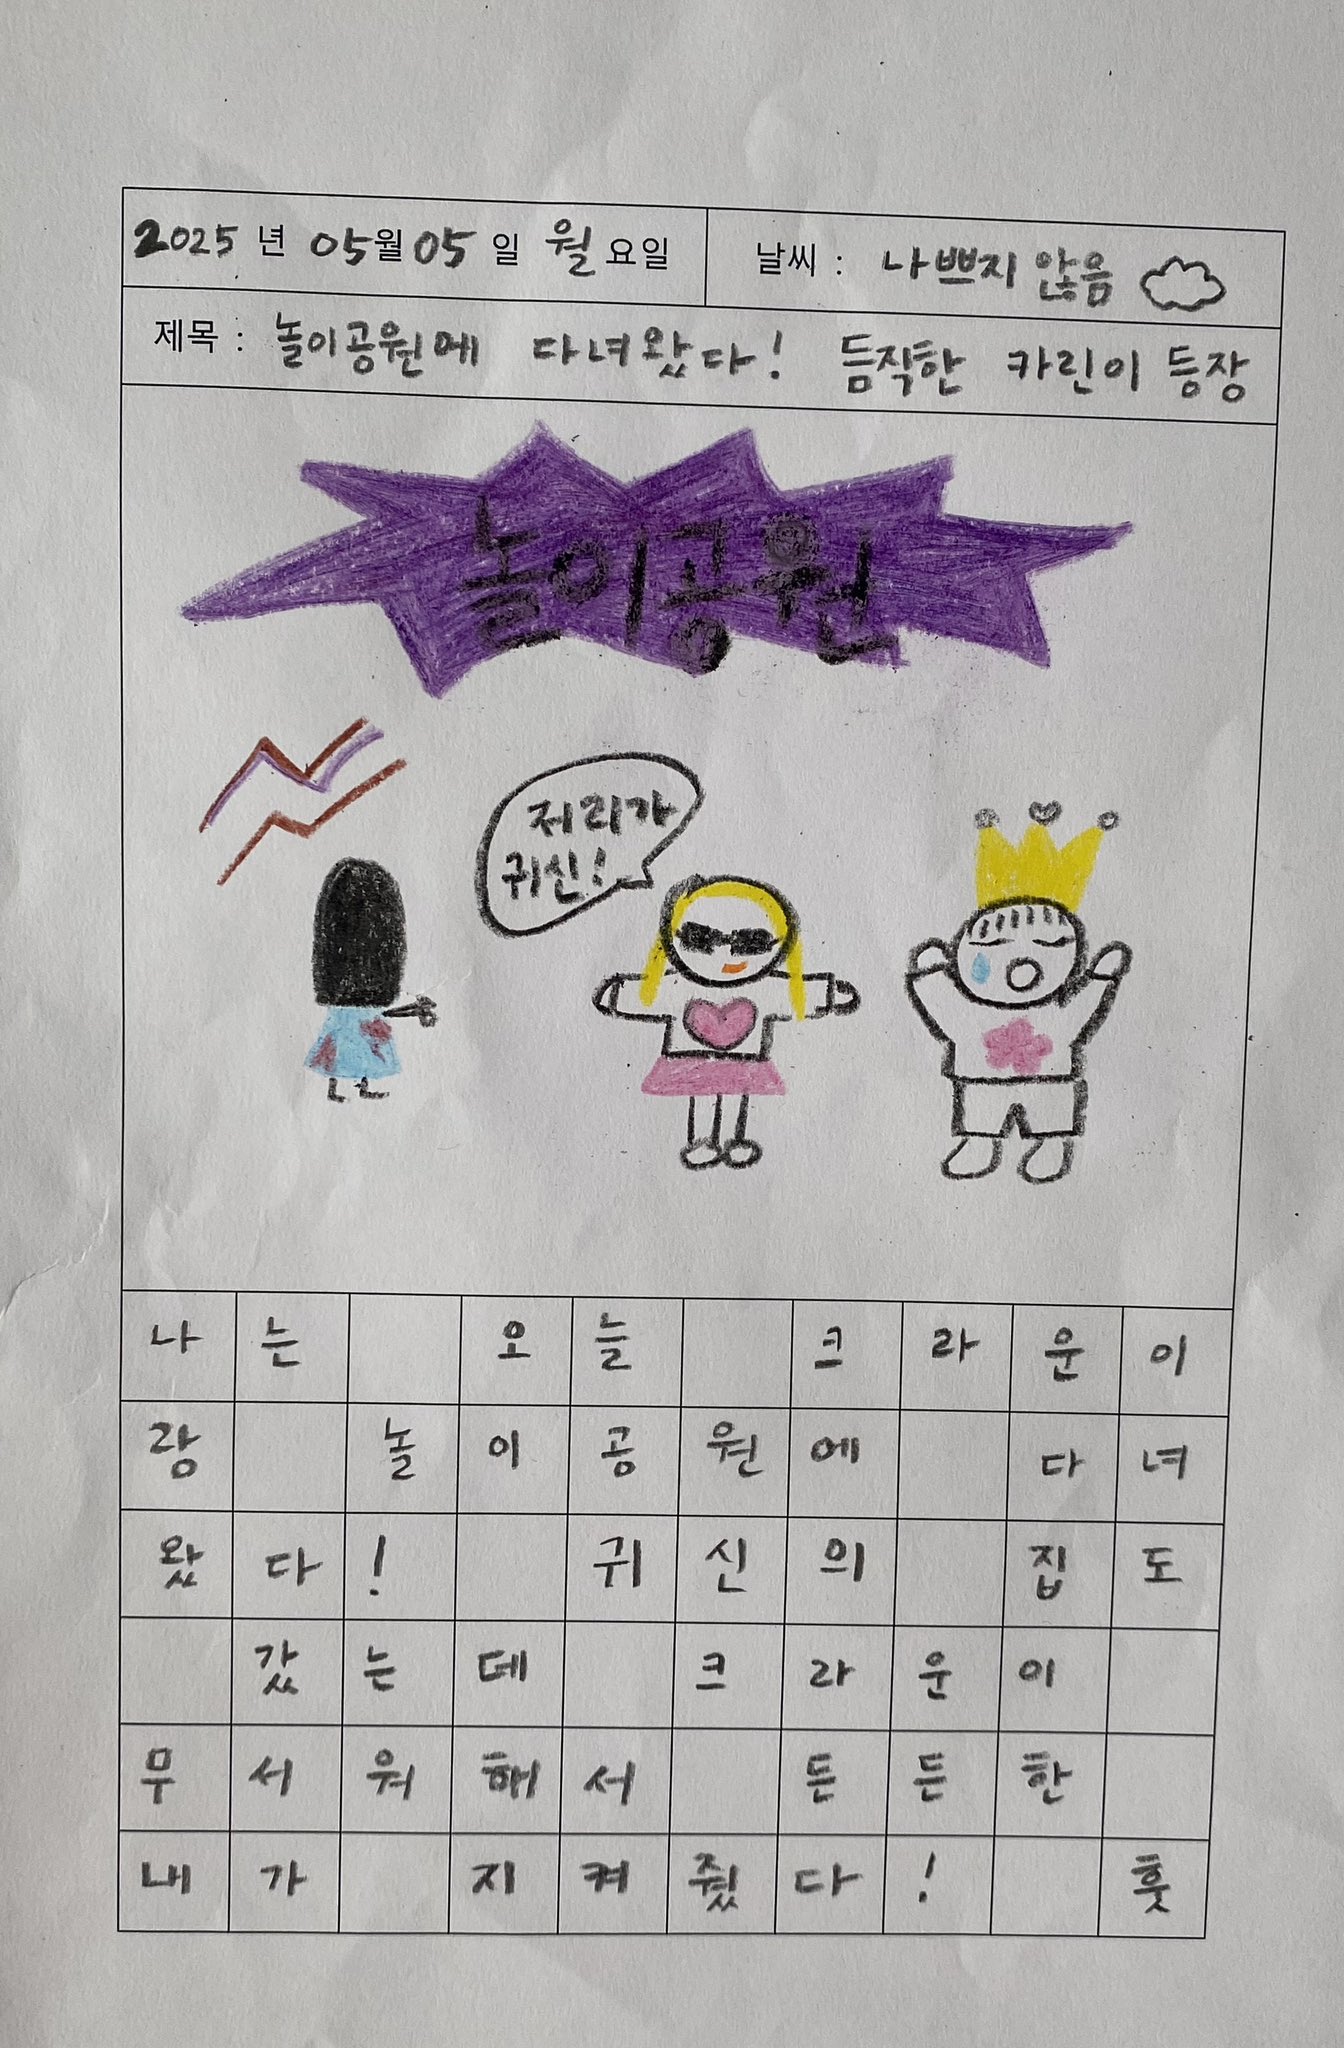 2025 년 05월 05 일 월 요일
날씨 : 나쁘지 않음
제목 : 놀이공원에 다녀왔다! 듬직한 카린이 등장
놀이공원
저리가
귀신!
나는 오늘 크라운이
랑 놀이공원에 다녀
왔다! 귀신의 집도
갔는데 크라운이
무서워해서 든든한
내가 지켜줬다! 훗